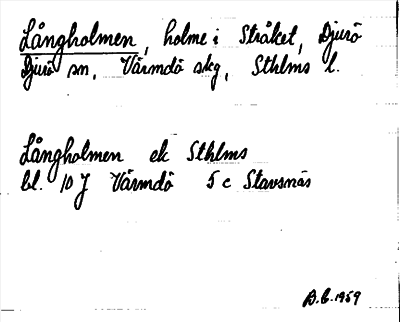 Långholmen, holme i Stråket, Djurö
Djurö sn, Värmdö skg, Sthlms l.
Långholmen ek Sthlms
bl. 10 J Värmdö 5 c Stavsnäs
B.C. 1959